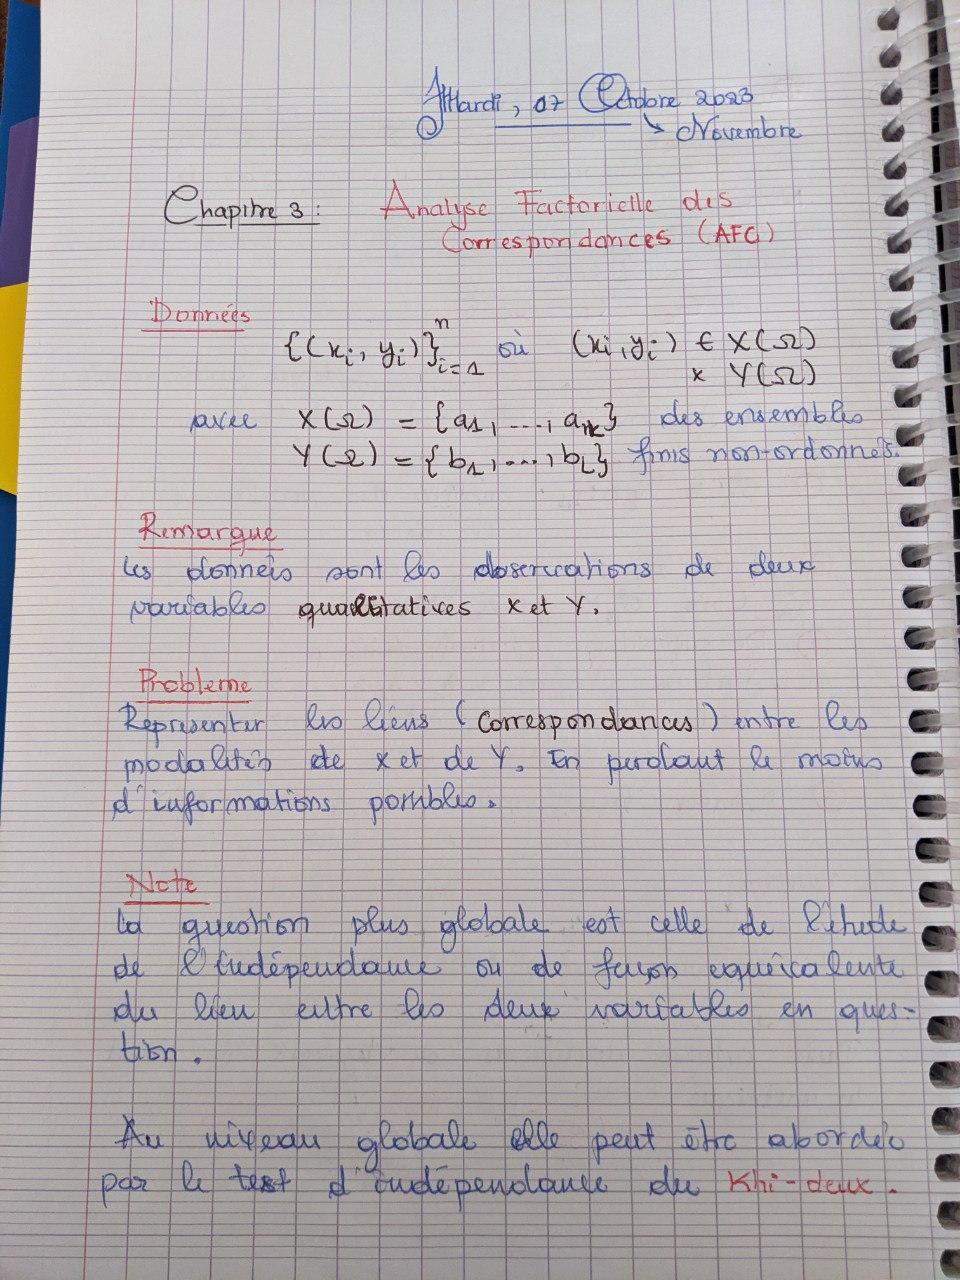 Mardi, 07 Octobre 2023
↳ Novembre
Chapitre 3 : Analyse Factorielle des
Correspondances (AFC)
Données
{(xi, yi)}ⁿi=1 où (xi, yi) ∈ X(Ω)
× Y(Ω)
avec X(Ω) = {a1, ..., ak} des ensembles
Y(Ω) = {b1, ..., bL} finis non-ordonnés.
Remarque
Les données sont les observations de deux
variables qualitatives X et Y.
Probleme
Representer les liens (Correspondances) entre les
modalités de X et de Y. En perdant le moins
d'informations possibles.
Note
La question plus globale est celle de l'étude
de l'indépendance ou de façon equivalente
du lien entre les deux variables en ques-
tion.
Au niveau globale elle peut être abordée
par le test d'indépendance du Khi-deux.